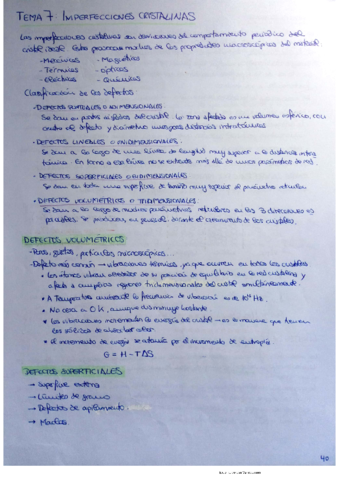 TEMA 7 IMPERFECCIONES CRISTALINAS
Las imperfecciones cristalinas son desviaciones del comportamiento periódico del
cristal ideal. Estas provocan muchas de las propiedades macroscópicas del material
- Mecánicas - Magnéticas
- Térmicas - ópticas
- Eléctricas - Químicas
Clasificación de los defectos
- DEFECTOS PUNTUALES O ADIMENSIONALES
Se dan en puntos del cristal. La zona afectada es un volumen esférico, con
centro el defecto y diámetro unas distancias interatómicas
- DEFECTOS LINEALES O UNIDIMENSIONALES
Se dan a lo largo de una línea de longitud muy superior a la distancia
En torno a esa línea no se extiende más allá de unos parámetros de red.
- DEFECTOS SUPERFICIALES O BIDIMENSIONALES
Se dan en toda una superficie de tamaño muy superior al parámetro reticular
- DEFECTOS VOLUMÉTRICOS O TRIDIMENSIONALES
Se dan a lo largo de muchos parámetros reticulares en las 3 direcciones
Se producen, en general, durante el crecimiento de los cristales.
DEFECTOS VOLUMÉTRICOS
- Poros, grietas, partículas microscópicas...
- Defecto más común → vibraciones térmicas, ya que ocurren en todos los cristales
• Los átomos vibran alrededor de su posición de equilibrio en la red cristalina y
afecta a amplias regiones tridimensionales del cristal simultáneamente.
• A Temperatura ambiente la frecuencia de vibración es de Hz.
• No cesa a 0 K, aunque disminuye bastante
• Las vibraciones incrementan la energía del cristal → es la manera que tienen
los sólidos de calor
• El incremento de energía se por el incremento de entropía
G = H - TΔS
DEFECTOS SUPERFICIALES
→ Superficie externa
→ Límites de grano
→ Defectos de apilamiento.
→ Maclas
40